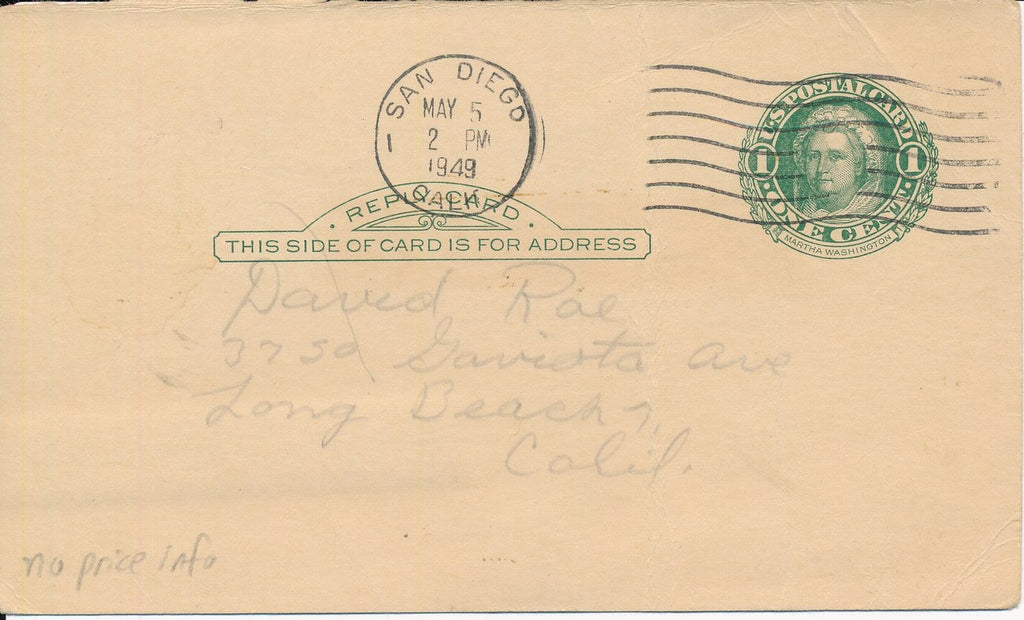 SAN DIEGO
1
MAY 5
2 PM
1949
CALIF.
U.S. POSTAL CARD
1 1
ONE CENT
MARTHA WASHINGTON
REPLY CARD
THIS SIDE OF CARD IS FOR ADDRESS
David Rae
3750 Gaviota Ave
Long Beach 7,
Calif.
no price info